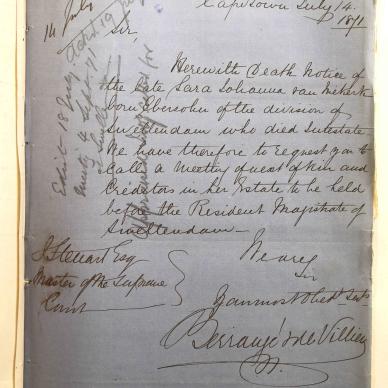 Capetown July 14.
1871
Sir,
Herewith Death Notice of
the late Sara Johanna van Niekerk
born Ebersohn of the division of
Swellendam who died Intestate
We have therefore to request you to
call a Meeting of next of kin and
Creditors in her Estate to be held
before the Resident Magistrate of
Swellendam—
We are
Sir
Your most Obedt Servts
Berrangé & de Villiers
J. Steuart Esq
Master of the Supreme
Court
14 July
Edict 18 July